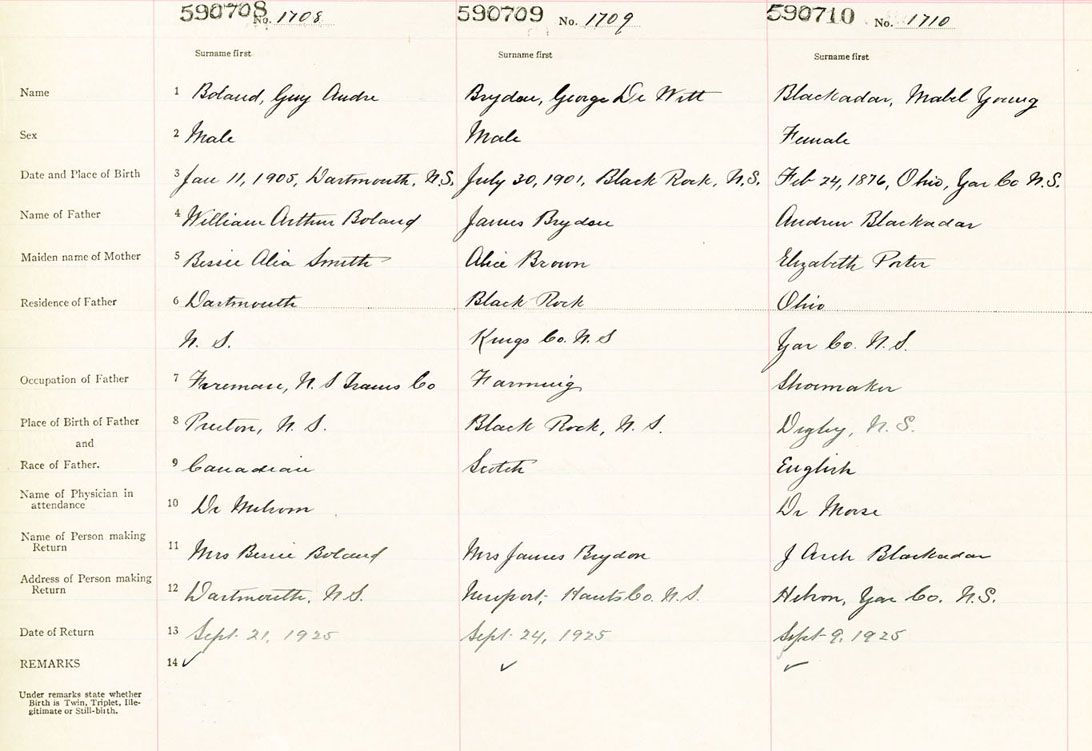 590708 No. 1708 590709 No. 1709 590710 No. 1710
Surname first Surname first Surname first
Name 1 Boland, Guy Andre Brydon, George De Witt Blackadar, Mabel Young
Sex 2 Male Male Female
Date and Place of Birth 3 Jan 11, 1905, Dartmouth, N.S. July 30, 1901, Black Rock, N.S. Feb 24, 1876, Ohio, Yar Co N.S.
Name of Father 4 William Arthur Boland James Brydon Andrew Blackadar
Maiden name of Mother 5 Bessie Alia Smith Alice Brown Elizabeth Porter
Residence of Father 6 Dartmouth Black Rock Ohio
N. S. Kings Co. N. S Yar Co. N. S.
Occupation of Father 7 Foreman, N. S Trams Co Farming Shoemaker
Place of Birth of Father 8 Preston, N. S. Black Rock, N. S. Digby, N. S.
and
Race of Father. 9 Canadian Scotch English
Name of Physician in
attendance 10 Dr Dr Morse
Name of Person making
Return 11 Mrs Bessie Boland Mrs James Brydon J Arch Blackadar
Address of Person making
Return 12 Dartmouth, N.S. Newport, Hants Co. N.S. Hebron, Yar Co. N.S.
Date of Return 13 Sept. 21, 1925 Sept. 24, 1925 Sept 9, 1925
REMARKS 14 ✓ ✓ ✓
Under remarks state whether
Birth is Twin, Triplet, Ille-
gitimate or Still-birth.